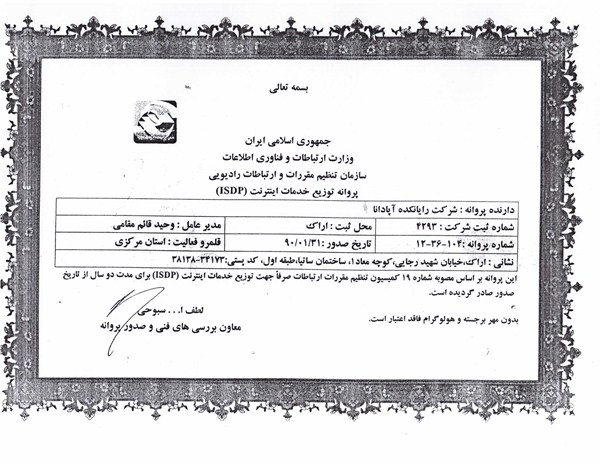 بسمه تعالی
جمهوری اسلامی ایران
وزارت ارتباطات و فناوری اطلاعات
سازمان تنظیم مقررات و ارتباطات رادیویی
پروانه توزیع خدمات اینترنت (ISDP)
دارنده پروانه : شرکت رایانکده آپادانا
شماره ثبت شرکت : ۴۲۹۳ محل ثبت : اراک مدیر عامل : وحید قائم مقامی
شماره پروانه :۱۰۴-۳۶-۱۲ تاریخ صدور :۹۰/۰۱/۳۱ قلمرو فعالیت : استان مرکزی
نشانی : اراک،خیابان شهید رجایی،کوچه معاد۱، ساختمان سانیا،طبقه اول، کد پستی:۳۴۱۷۳-۳۸۱۳۸
این پروانه بر اساس مصوبه شماره ۱۹ کمیسیون تنظیم مقررات ارتباطات صرفاً جهت توزیع خدمات اینترنت (ISDP) برای مدت دو سال از تاریخ
صدور صادر گردیده است.
بدون مهر برجسته و هولوگرام فاقد اعتبار است.
لطف ا... سبوحی
معاون بررسی های فنی و صدور پروانه